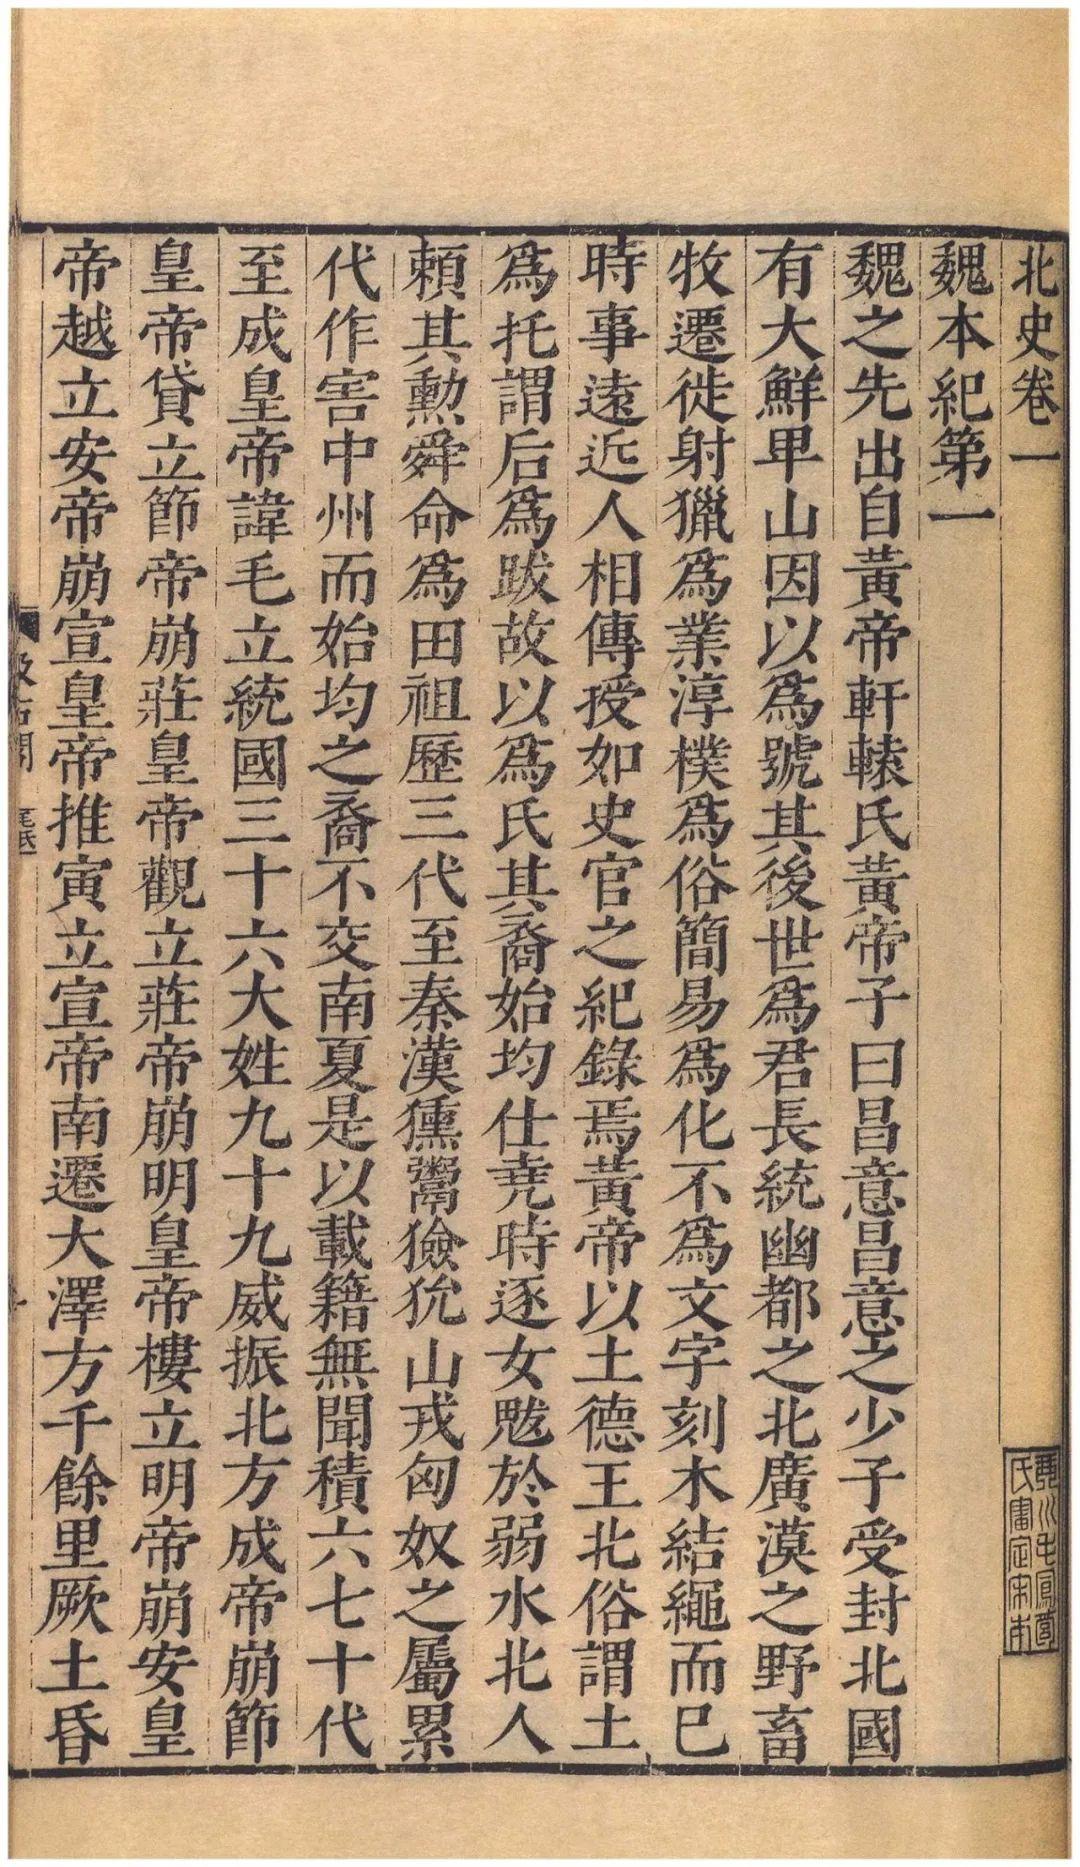 北史卷一
魏本紀第一
魏之先出自黃帝軒轅氏黃帝子曰昌意昌意之少子受封北國
有大鮮卑山因以爲號其後世爲君長統幽都之北廣漠之野畜
牧遷徙射獵爲業淳樸爲俗簡易爲化不爲文字刻木結繩而已
時事遠近人相傳授如史官之紀錄焉黃帝以土德王北俗謂土
爲托謂后爲跋故以爲氏其裔始均仕堯時逐女魃於弱水北人
頼其勲舜命爲田祖歷三代至秦漢獯鬻獫狁山戎匈奴之屬累
代作害中州而始均之裔不交南夏是以載籍無聞積六七十代
至成皇帝諱毛立統國三十六大姓九十九威振北方成帝崩節
皇帝貸立節帝崩莊皇帝觀立莊帝崩明皇帝樓立明帝崩安皇
帝越立安帝崩宣皇帝推寅立宣帝南遷大澤方千餘里厥土昏